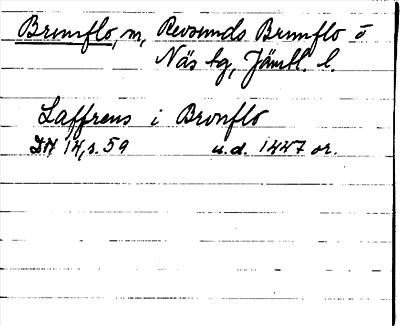 Brunflo, sn, Revsunds Brunflo o
Näs tg, Jämtl. l.
Laffrens i Brvnflo
DN 14, s. 59 u.d. 1447 or.